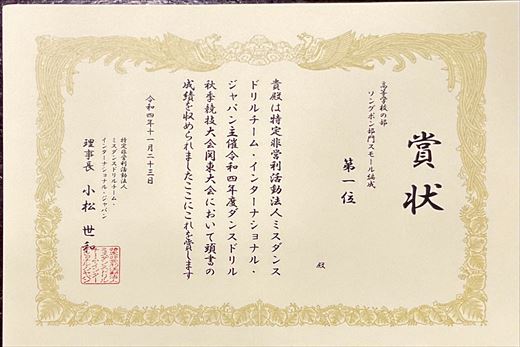 賞状
高等学校の部
ソングポン部門スモール編成
第一位
殿
貴殿は特定非営利活動法人ミスダンス
ドリルチーム・インターナショナル・
ジャパン主催令和四年度ダンスドリル
秋季競技大会関東大会において頭書の
成績を収められましたここにこれを賞します
令和四年十一月二十三日
特定非営利活動法人
ミスダンスドリルチーム・
インターナショナル・ジャパン
理事長 小松 世和